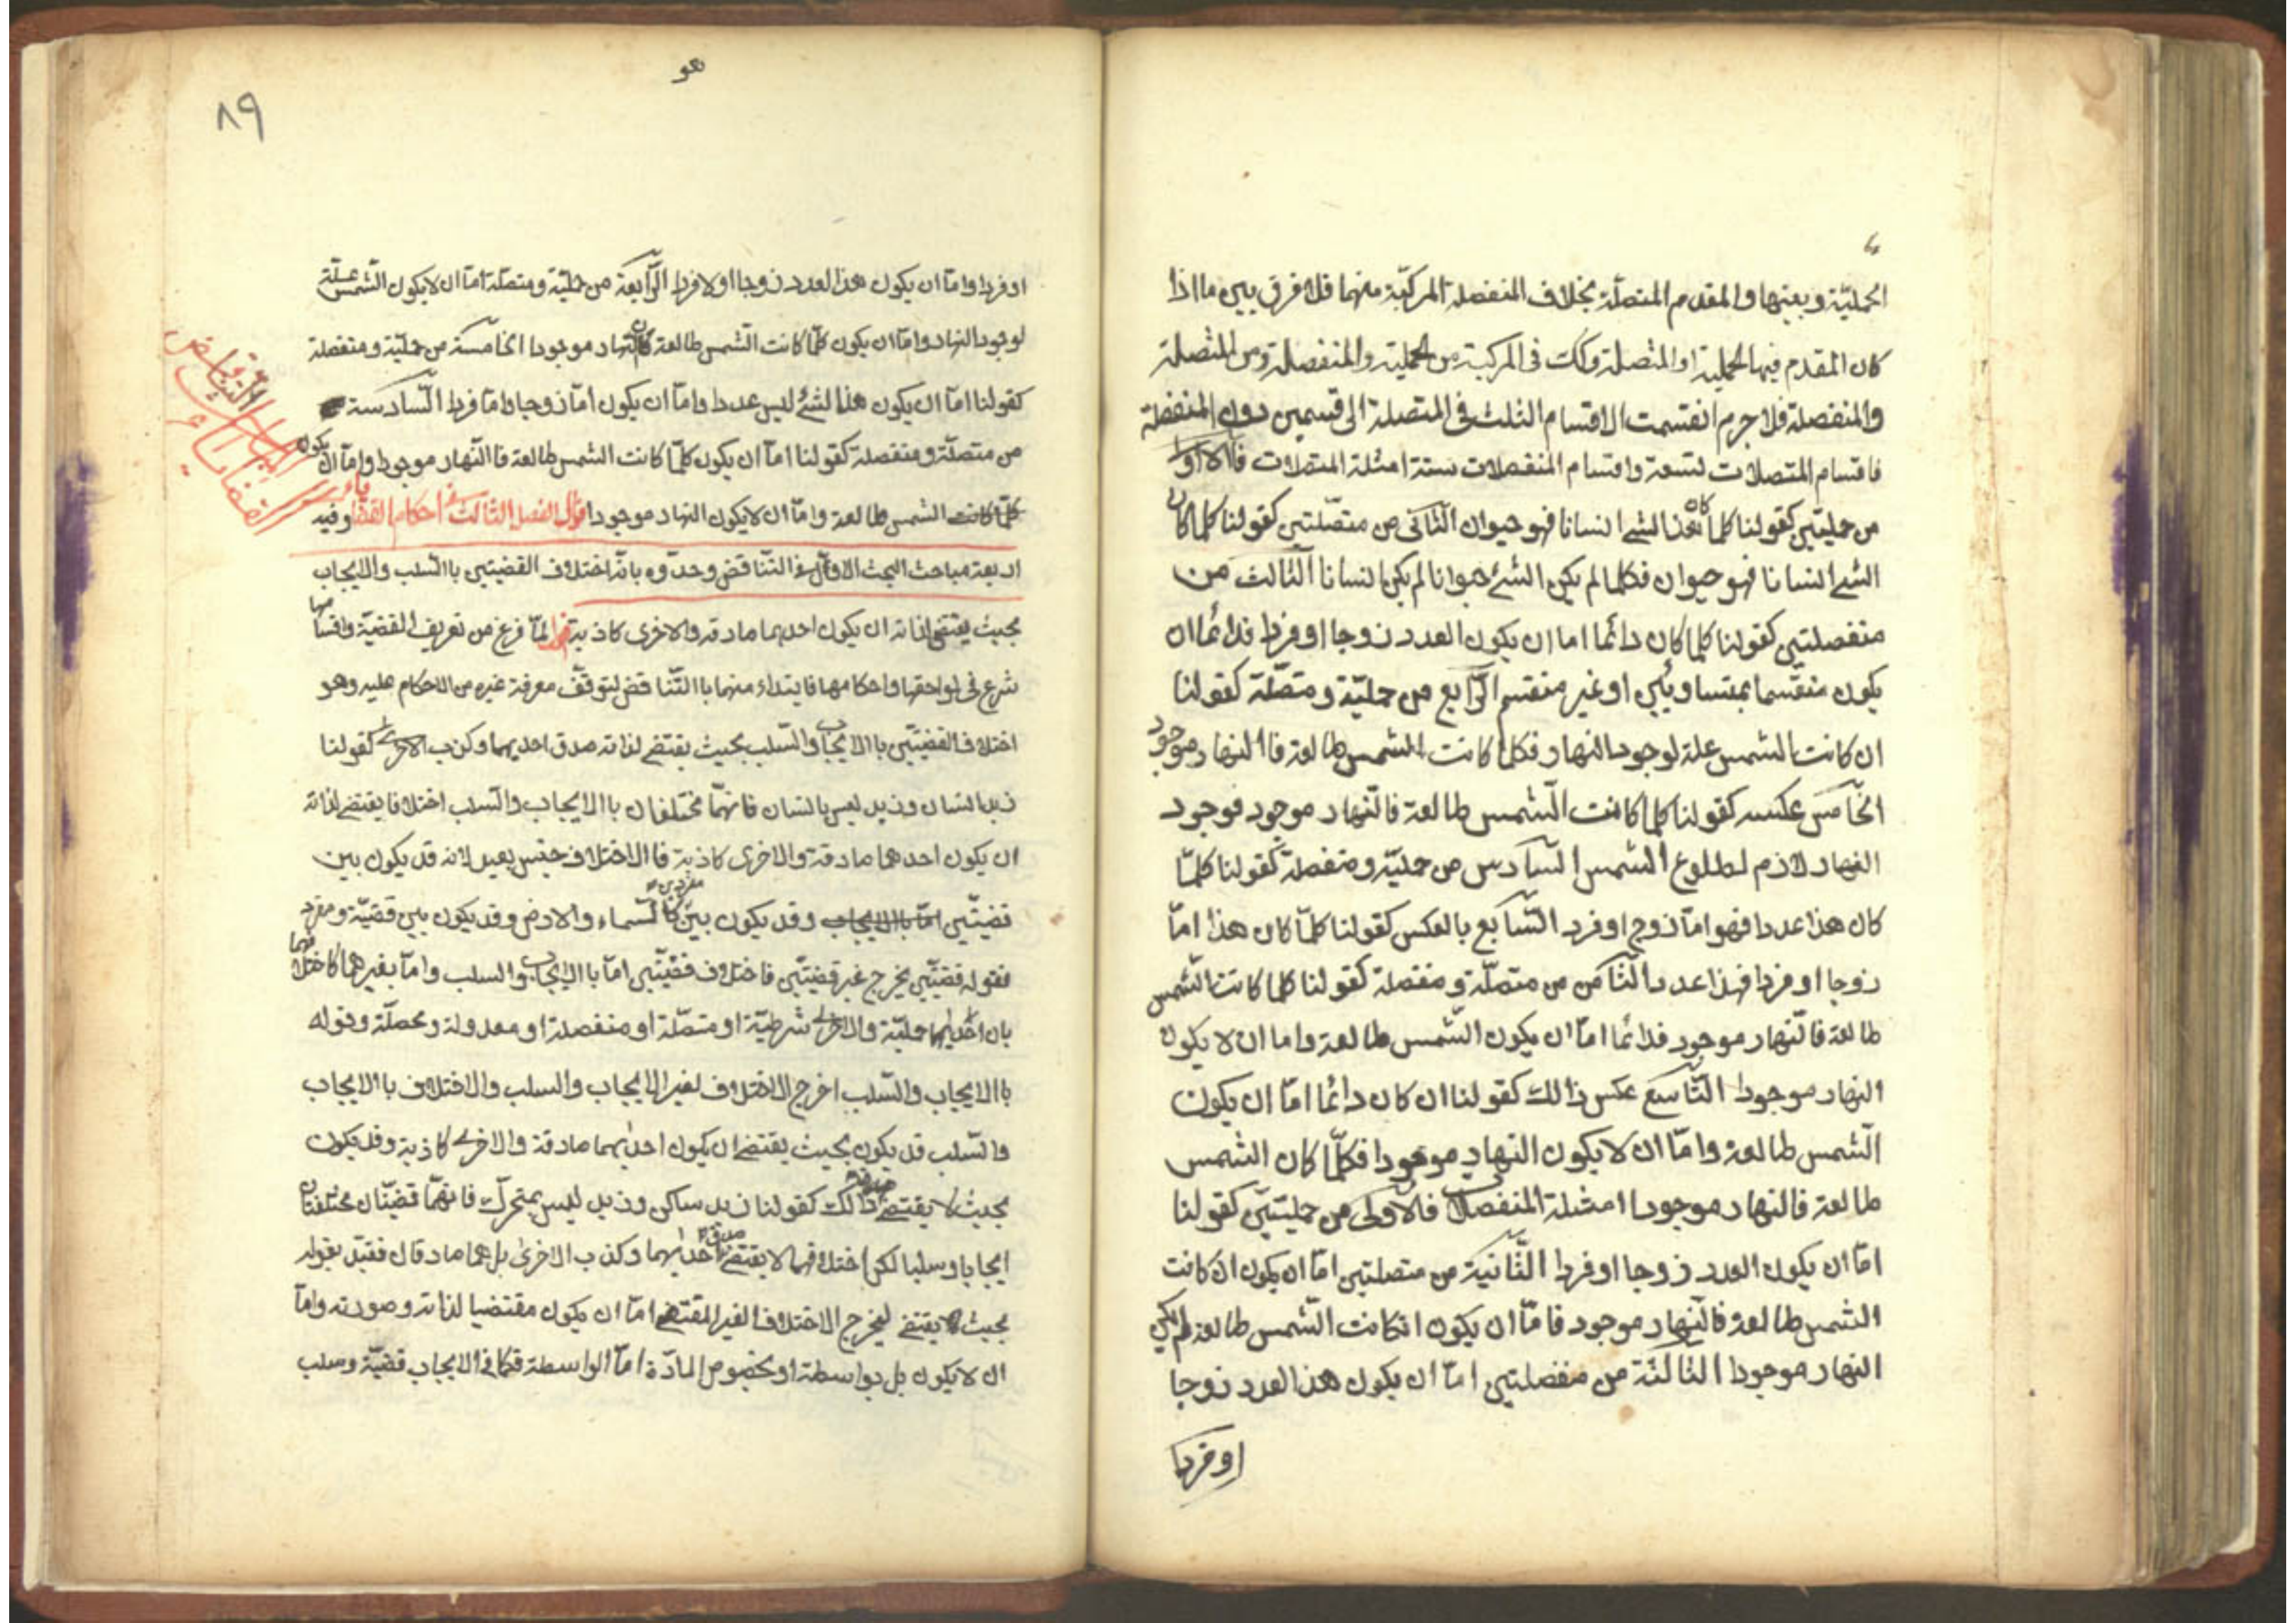 الحملیّة وبعینها والمقدم المتصلّة بخلاف المنفصلة المرکبّة منهما فلا فرق بین ما اذا
کان المقدم فیها الحملیة او المتصلة وکک فی المرکبة من الحملیة والمنفصلة ومن المتصلة
والمنفصلة فلا جرم انقسمت الاقسام الثلث فی المتصلة الی قسمین دون المنفصلة
فاقسام المتصلات تسعة واقسام المنفصلات ستة امثلة المتصلات فالاول
من حملیتین کقولنا کلما کان هذا الشئ انسانا فهو حیوان الثّانی من متصّلتین کقولنا کلما کان
الشئ انسانا فهو حیوان فکلما لم یکن الشئ حیوانا لم یکن انسانا الثّالث من
منفصلتین کقولنا کلما کان دائما اما ان یکون العدد زوجا او فردا فدائما ان
یکون منقسما بمتساویین او غیر منقسم الرّابع من حملیّة ومتصّلة کقولنا
ان کانت الشمس علة لوجود النهار فکلما کانت الشمس طالعة فاالنهار موجود
الخٓامس عکسه کقولنا کلما کانت الشّمس طالعة فالنّهار موجود فوجود
النهار لازم لطلوع الشمس السّادس من حملیّة ومنفصلة کقولنا کلمّا
کان هذا عددا فهو امّا زوج او فرد السّابع بالعکس کقولنا کلمّا کان هذا امّا
زوجا او فردا فهذا عددا الثّامن من متصلّة ومنفصلة کقولنا کلما کانت الشّمس
طالعة فالنّهار موجود فدائما امّا ان یکون الشّمس طالعة واما ان لا یکون
النهار موجودا التّاسع عکس ذالك کقولنا ان کان دائما امّا ان یکون
الشّمس طالعة وامّا ان لا یکون النهار موجودا فکلّما کان الشّمس
طالعة فالنهار موجودا امثلة المنفصلات فالاولی من حملیتیّن کقولنا
امّا ان یکون العدد زوجا او فردا الثّانیة من متصلتین امّا ان یکون ان کانت
الشمس طالعة فالنّهار موجود فامّا ان یکون انکانت الشّمس طالعة لم یکن
النهار موجودا الثالثة من منفصلتین امّا ان یکون هذا العدد زوجا
او فردا
هو
٨٩
او فردا وامّا ان یکون هذا العدد زوجا او لا فردا الرّابعة من حملیّة ومتصلة امّا ان لا یکون الشّمس علّة
لوجود النهار وامّا ان یکون کلمّا کانت الشّمس طالعة کان النهار موجودا الخامسة من حملیّة ومنفصلة
کقولنا امّا ان یکون هذا الشئ لیس عددا وامّا ان یکون امّا زوجا وامّا فردا السّادسة
من متصلّة ومنفصلة کقولنا امّا ان یکون کلمّا کانت الشمس طالعة فاالنّهار موجودا وامّا ان یکون
کلمّا کانت الشمس طالعة وامّا ان لا یکون النهار موجودا قال الفصل الثّالث فی احکام القضایا وفیه
اربعة مباحث البحث الاوّل فی التّناقض وحدّوه بانّه اختلاف القضیتین باالسّلب والایجاب
بحیث یقتضی لذاته ان یکون احدیهما صادقة والاخری کاذبة اقول لمّا فرغ من تعریف القضیّة واقسامها
شرع فی لواحقها واحکامها فابتداء منهما باالتّناقض لتوقّف معرفة غیره من الاحکام علیه وهو
اختلاف القضیّتین باالایجاب والسّلب بحیث یقتضی لذاته صدق احدیهما وکذب الاخری کقولنا
زید انسان وزید لیس بانسان فانهمّا مختلفان باالایجاب والسّلب اختلافا یقتضی لذاته
ان یکون احدهما صادقة والاخری کاذبة فاالاختلاف جنس بعید لانه قد یکون بین
قضیّتین وقد یکون بین مفردین کالسّماء والارض وقد یکون بین قضیّة ومفرد
فقوله قضیّتین یخرج غیر قضیّتین فاختلاف قضیّتین امّا باالایجاب والسلب وامّا بغیرهما کاختلافهما
بان احدیهما حملیّة والاخری شرطیّة او متصّلة او منفصلة او معدولة ومحصلّة وقوله
باالایجاب والسّلب اخرج الاختلاف لغیر الایجاب والسلب والاختلاف باالایجاب
والسّلب قد یکون بحیث یقتضی ان یکون احدیهما صادقة والاخری کاذبة وقد یکون
بحیث لا یقتضی ذالك کقولنا زید ساکن وزید لیس بمتحرّك فانهمّا قضیّتان مختلفتان
ایجابا وسلبا لکن اختلافهما لا یقتضی صدق احدیهما وکذب الاخری بل هما صادقان فقیّد بقوله
بحیث یقتضی لیخرج الاختلاف الغیر المقتضی امّا ان یکون مقتضیا لذاته وصورته وامّا
ان لا یکون بل بواسطة او بخصوص المادّة امّا الواسطة فکما فی الایجاب قضیّة وسلب